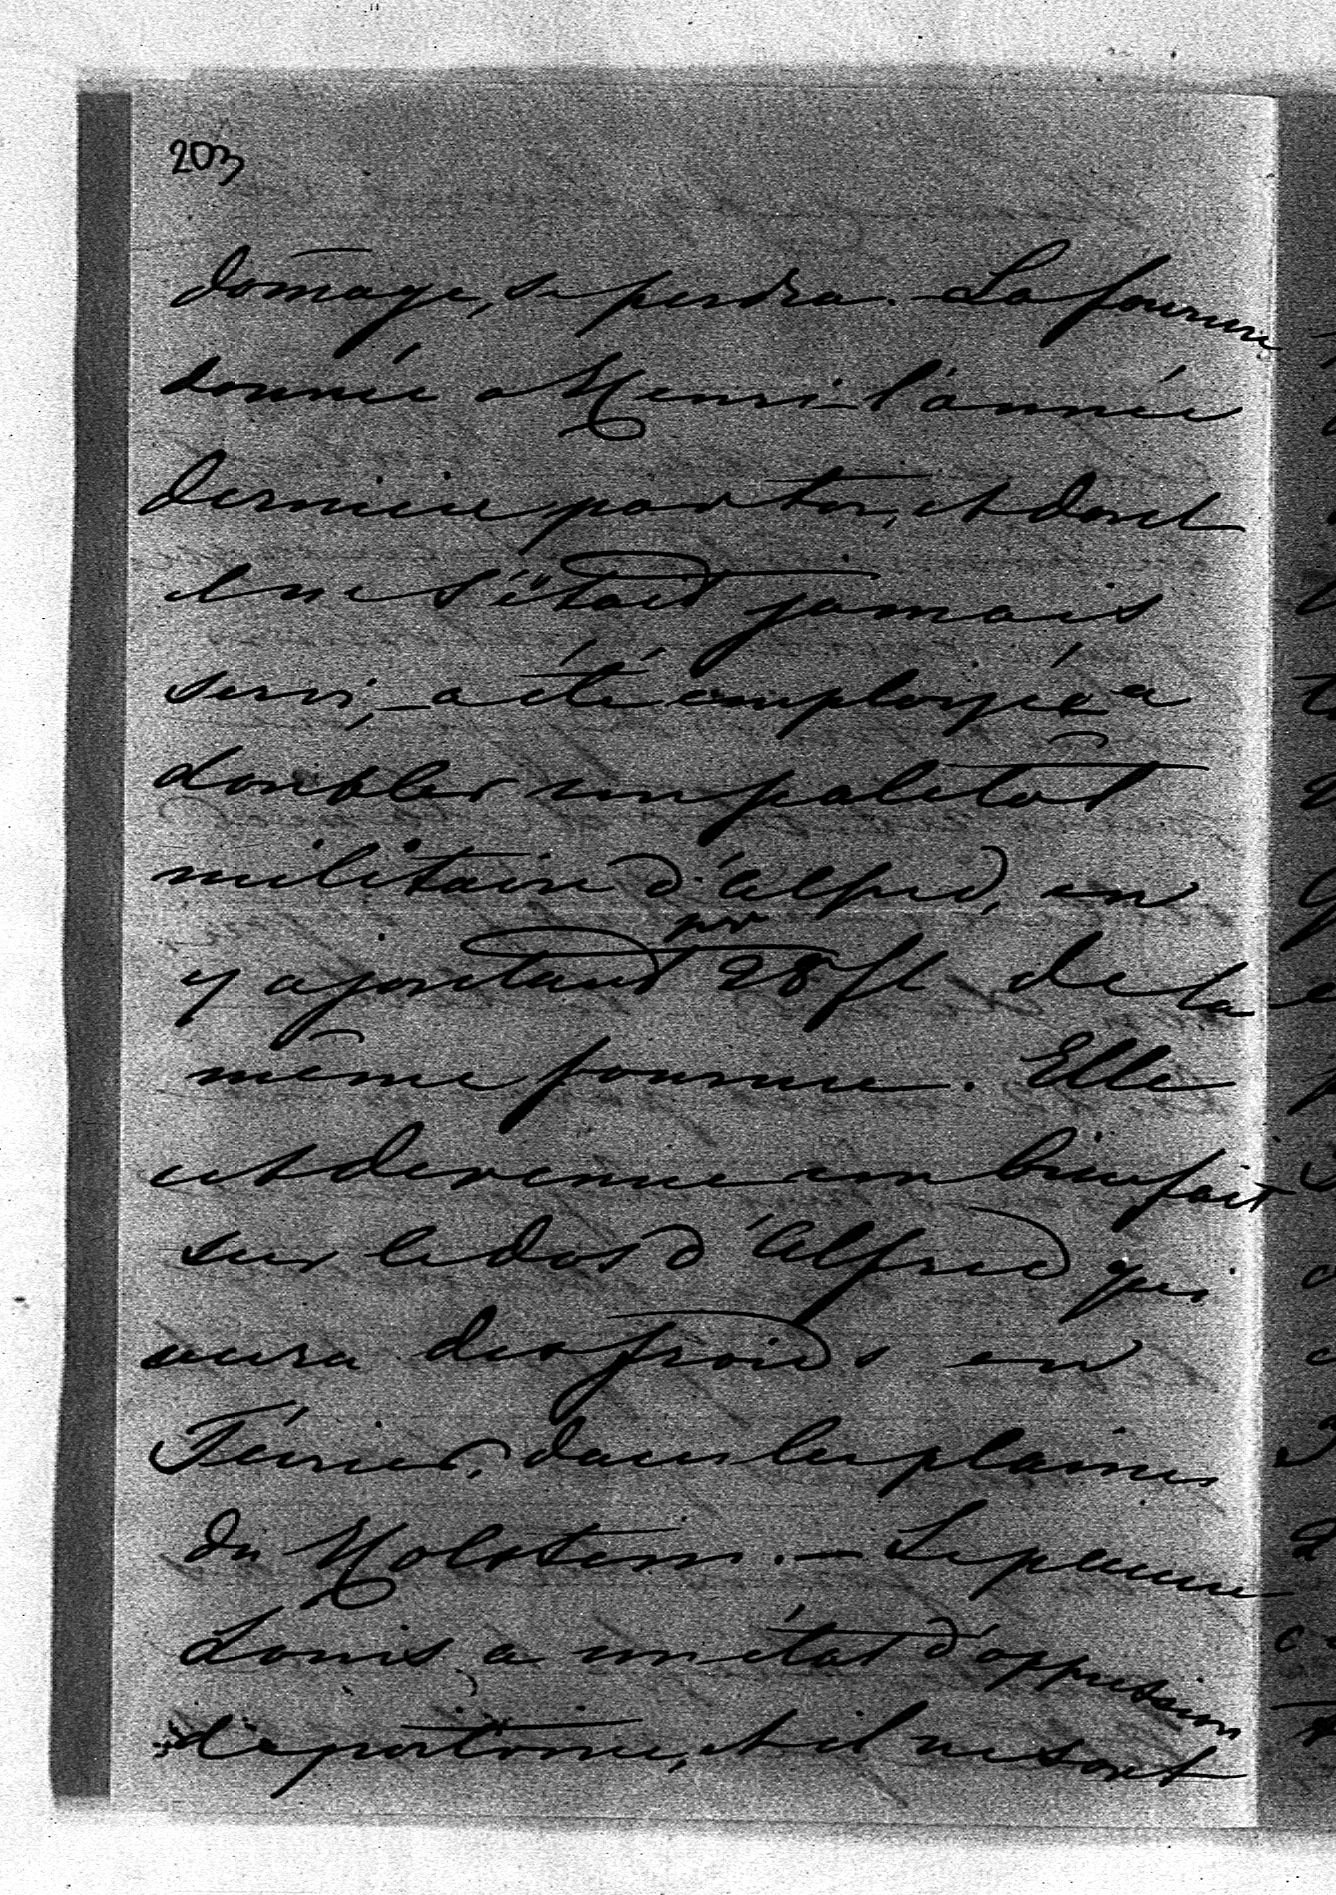 203
domage, se perdra. – La fourrure
donnée a Henri l'année
dernière par toi, et dont
il ne s'était jamais
servi, – a été employée a
doubler un paletôt
militaire d'Alfred, en
y ajoutant pr 28 fl de la
même fourrure. Elle
est devenue un bienfait
sur le dos d'Alfred qui
aura des froids en
Février, dans les plaines
du Holstein. – Le pauvre
Louis a un état d'oppression
de poitrine, et il ne sort